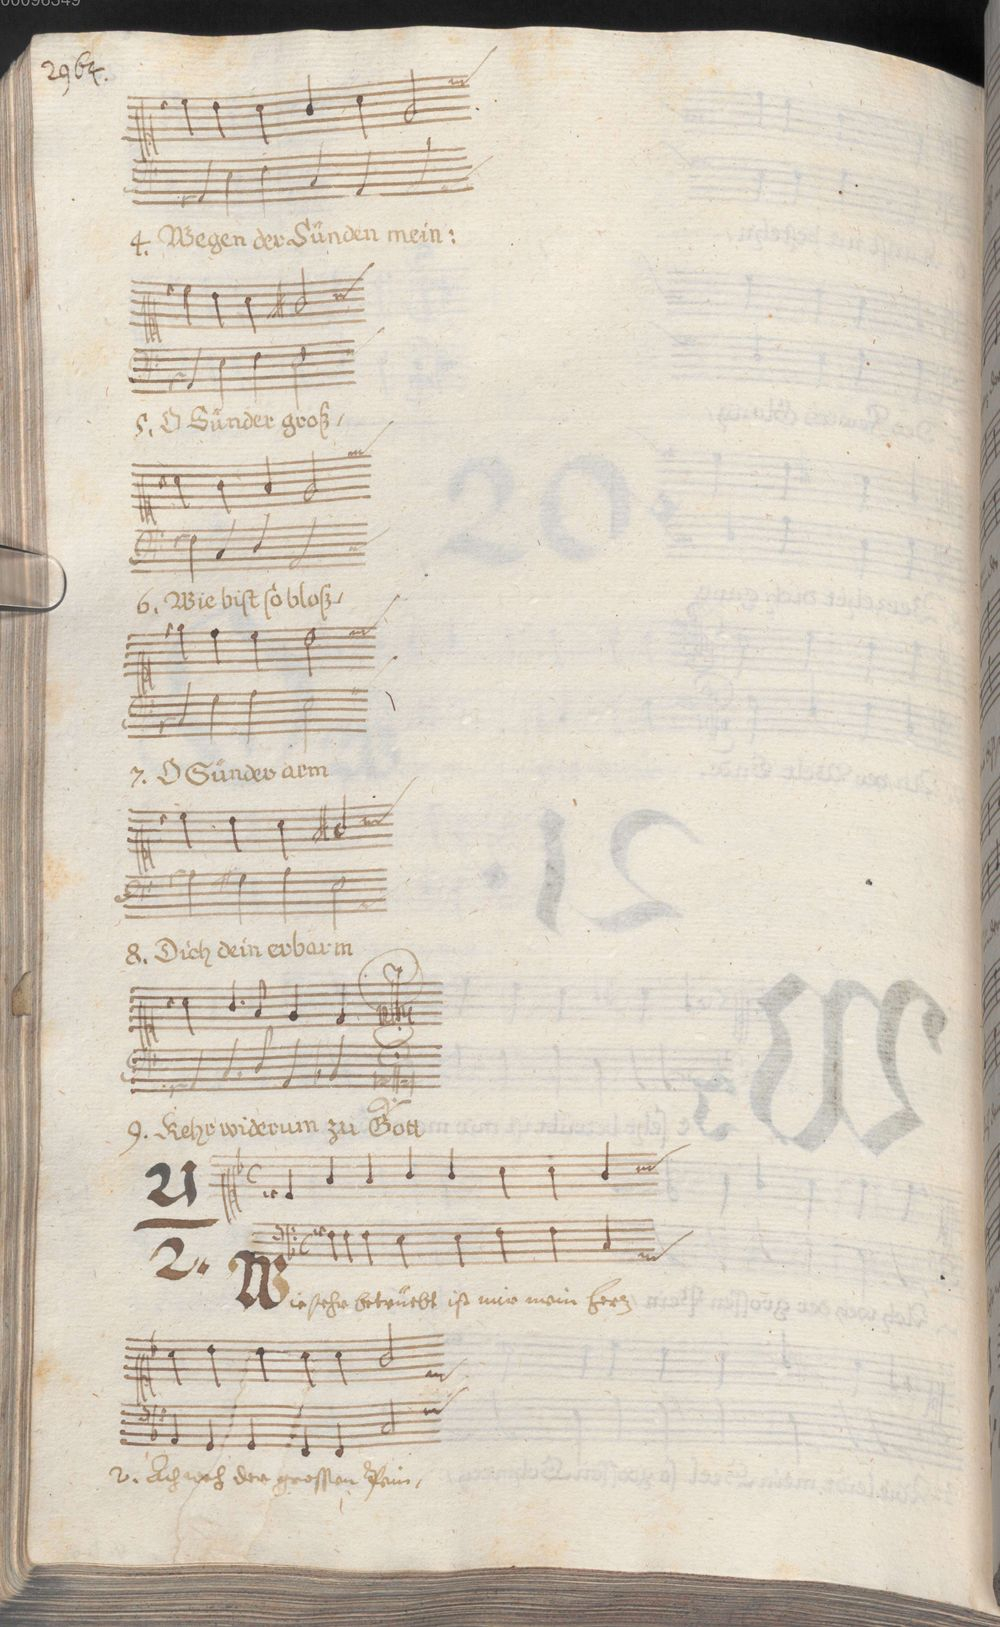 00098349
2964.
4. Wegen der Sünden mein:
5. O Sünder groß/
6. Wie bist so bloß/
7. O Sünder arm
8. Dich dein erbarm
9. Kehr widerum zu Gott
21
2.
Wie sehr betrüebt ist mir mein herz
2. Ach weh der grossen Pein,